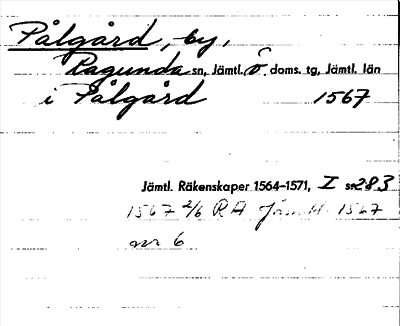 Pålgård, by,
Ragunda sn, Jämtl. Ö. doms. tg, Jämtl. län
i Pålgård 1567
Jämtl. Räkenskaper 1564–1571, I s. 283
1567 2/6 RA Jämtl. 1567
nr 6